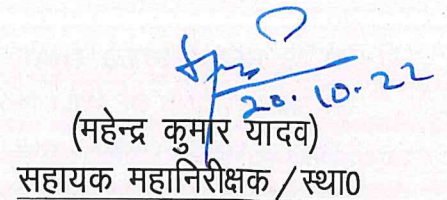 20.10.22
(महेन्द्र कुमार यादव)
सहायक महानिरीक्षक / स्था0